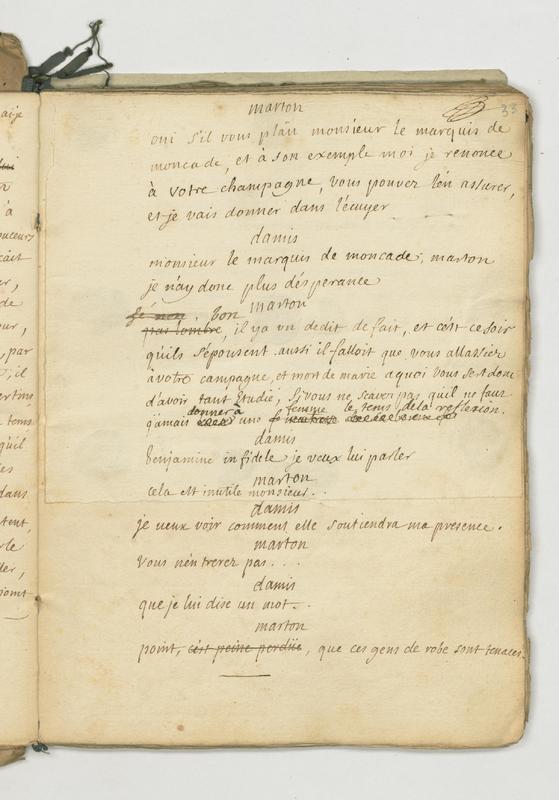 33
marton
oui s'il vous plait monsieur le marquis de
moncade, et à son exemple moi je renonce
à votre champagne, vous pouvez l'en assurer,
et je vais donner dans l'écuyer
damis
monsieur le marquis de moncade, marton
je n'ay donc plus d'ésperance
marton
bon
pas l'ombre, il y a un dedit de fait, et c'ést ce soir
qu'ils s'épousent. aussi il falloit que vous allassiez
à votre campagne, et mort de ma vie a quoi vous sert donc
d'avoir tant Etudié, si vous ne scavez pas qu'il ne faut
donner à femme le tems de la reflexion.
jamais une
damis
benjamine infidele je veux lui parler
marton
cela est inutile monsieur..
damis
je veux voir comment elle soutiendra ma presence.
marton
vous n'en trerez pas...
damis
que je lui dise un mot..
marton
point, c'est peine perdüe, que ces gens de robe sont tenaces.
aije
à
de
par
il
tems
qu'il
dans